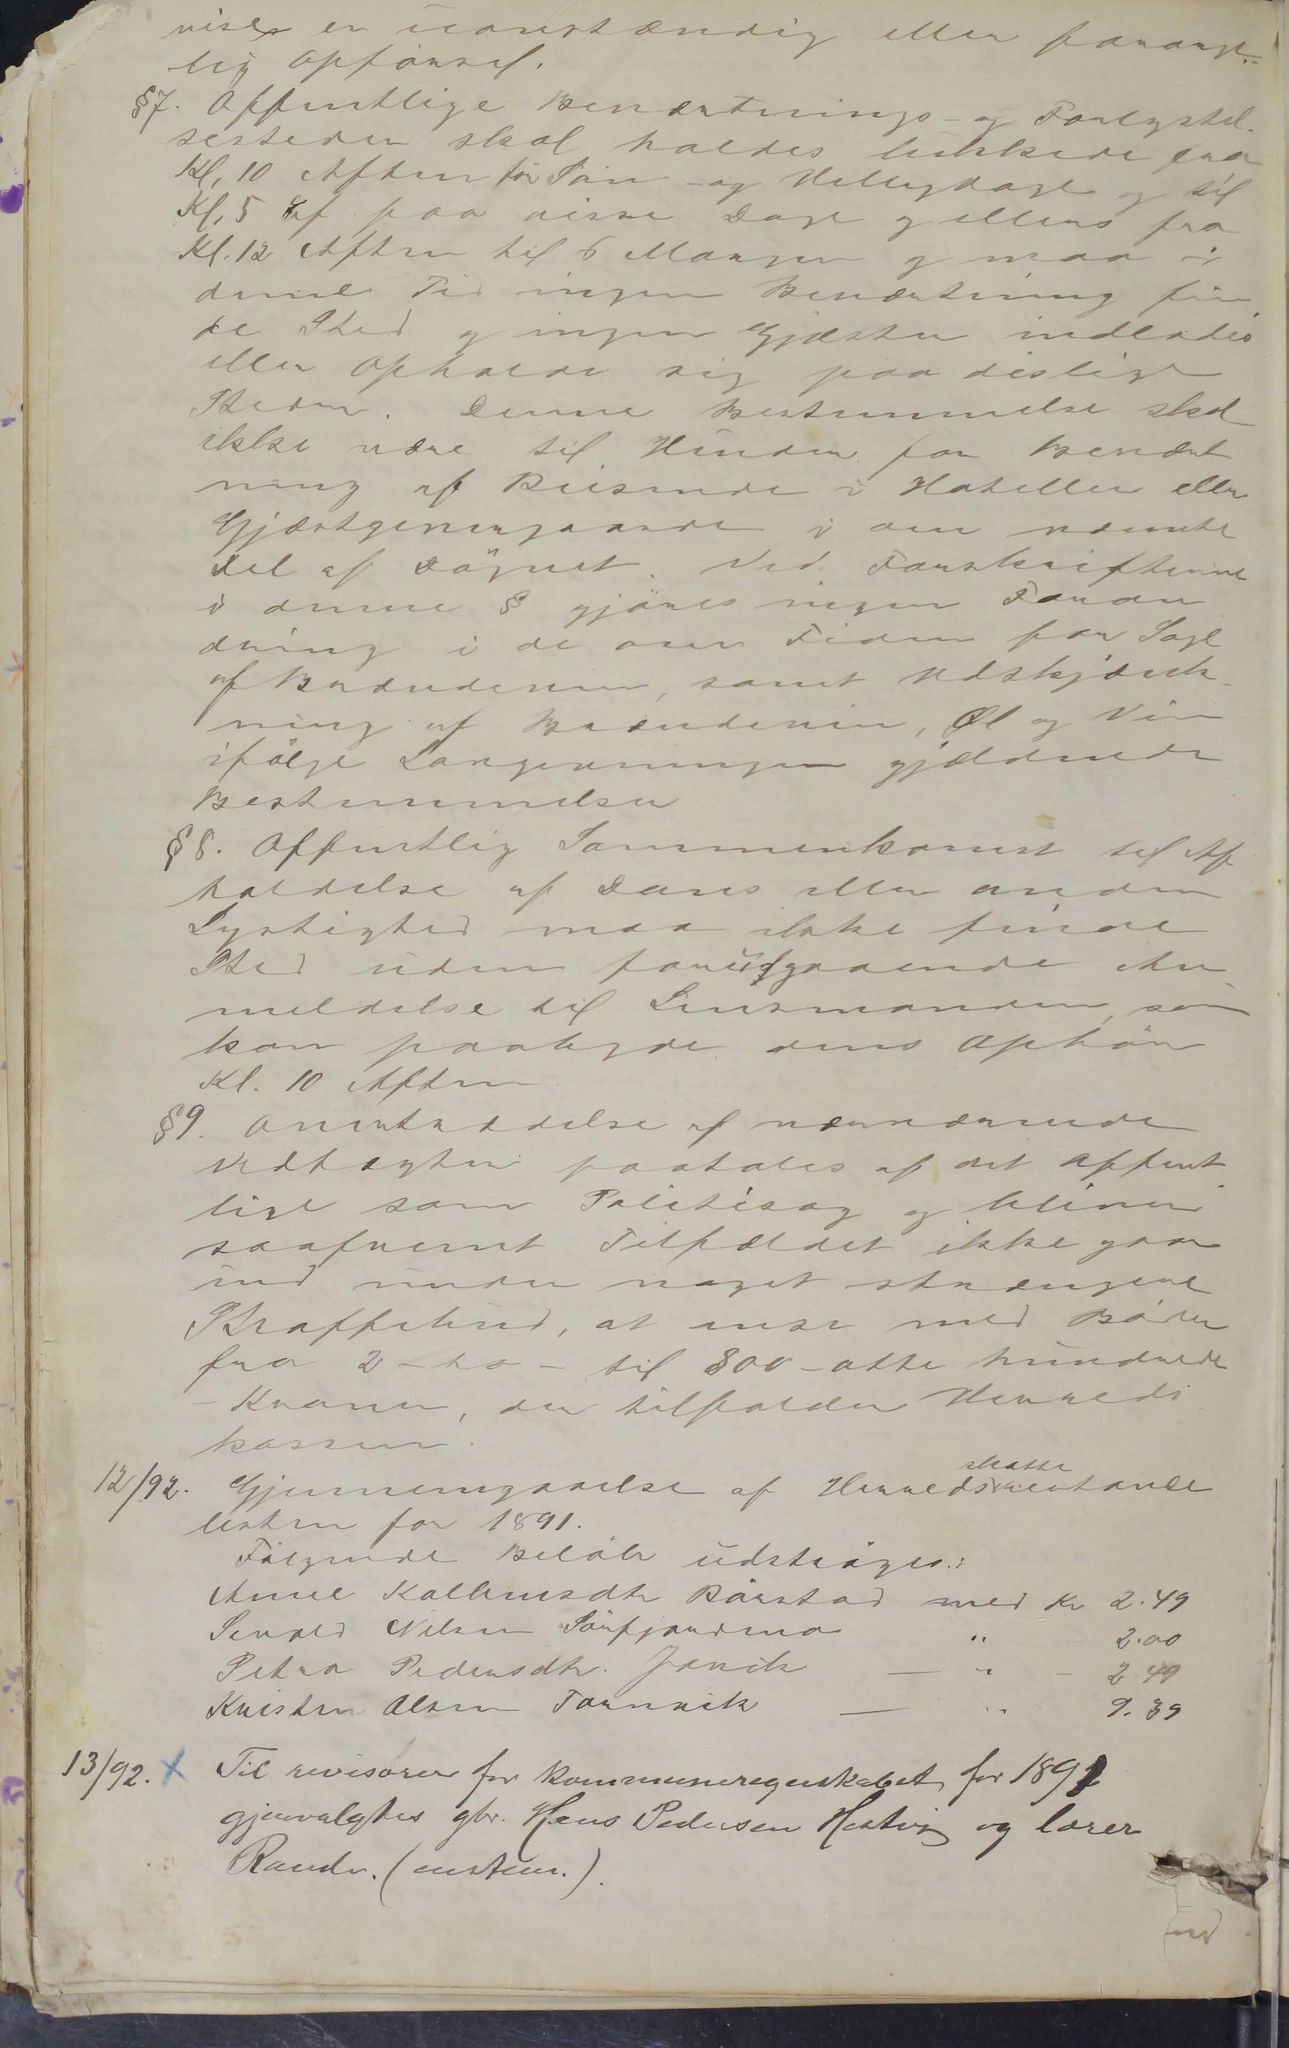 viser en uanstændig eller forarge-
lig Opførsel.
§7. Offentlige Beværtnings- og Forlystel-
sesteder skal holdes lukkede fra
Kl. 10 Aften før Søn- og Helligdage og til
Kl. 5 Ef paa disse Dage og ellers fra
Kl. 12 Aften til 6 Morgen og maa i
denne Tid ingen Beværtning fin
de Sted og ingen Gjæster indlades
eller opholde sig paa deslige
Steder. Denne Bestemmelse skal
ikke være til Hinder for Bevært
ning af Reisende i Hoteller eller
Gjæstgivergaarde i den nævnte
Del af Døgnet. Ved Forskrifterne
i denne § gjøres ingen Foran
dring i de over Tiden for Salg
af Brændevin, samt Udskjænk-
ning af Brændevin, Øl og Vin
ifølge Lovgivningen gjældende
Bestemmelser
§8. Offentlig Sammenkomst til Af
holdelse af Dans eller anden
Lystighed maa ikke finde
Sted uden forudgaaende An
meldelse til Lensmanden, som
kan paabyde dens Ophør
Kl. 10 Aften
§9. Overtrædelse af nærværende
Vedtægter paatales af det offent
lige som Politisag og bliver
saafremt Tilfældet ikke gaar
ind under noget strængere
Straffebud, at anse med Bøder
fra 2 - to - til 800 - otte hundrede
- Kroner, der tilfalder Herreds
kassen.
12/92. Gjennemgaaelse af Herredsskatterestance
listen for 1891.
Følgende Beløb udstryges:
Anne Kallensdtr Børstad med Kr 2.49
Sivald Nilsen Sørfjordmo " 2.00
Petra Pedersdtr. Forvik — " - 2.49
Kristen Olsen Forvik — " 9.39
13/92. x Til revisorer for kommuneregnskabet for 1891
gjenvalgtes gbr. Hans Pedersen Hestvig og lærer
Rande. (enstem.).